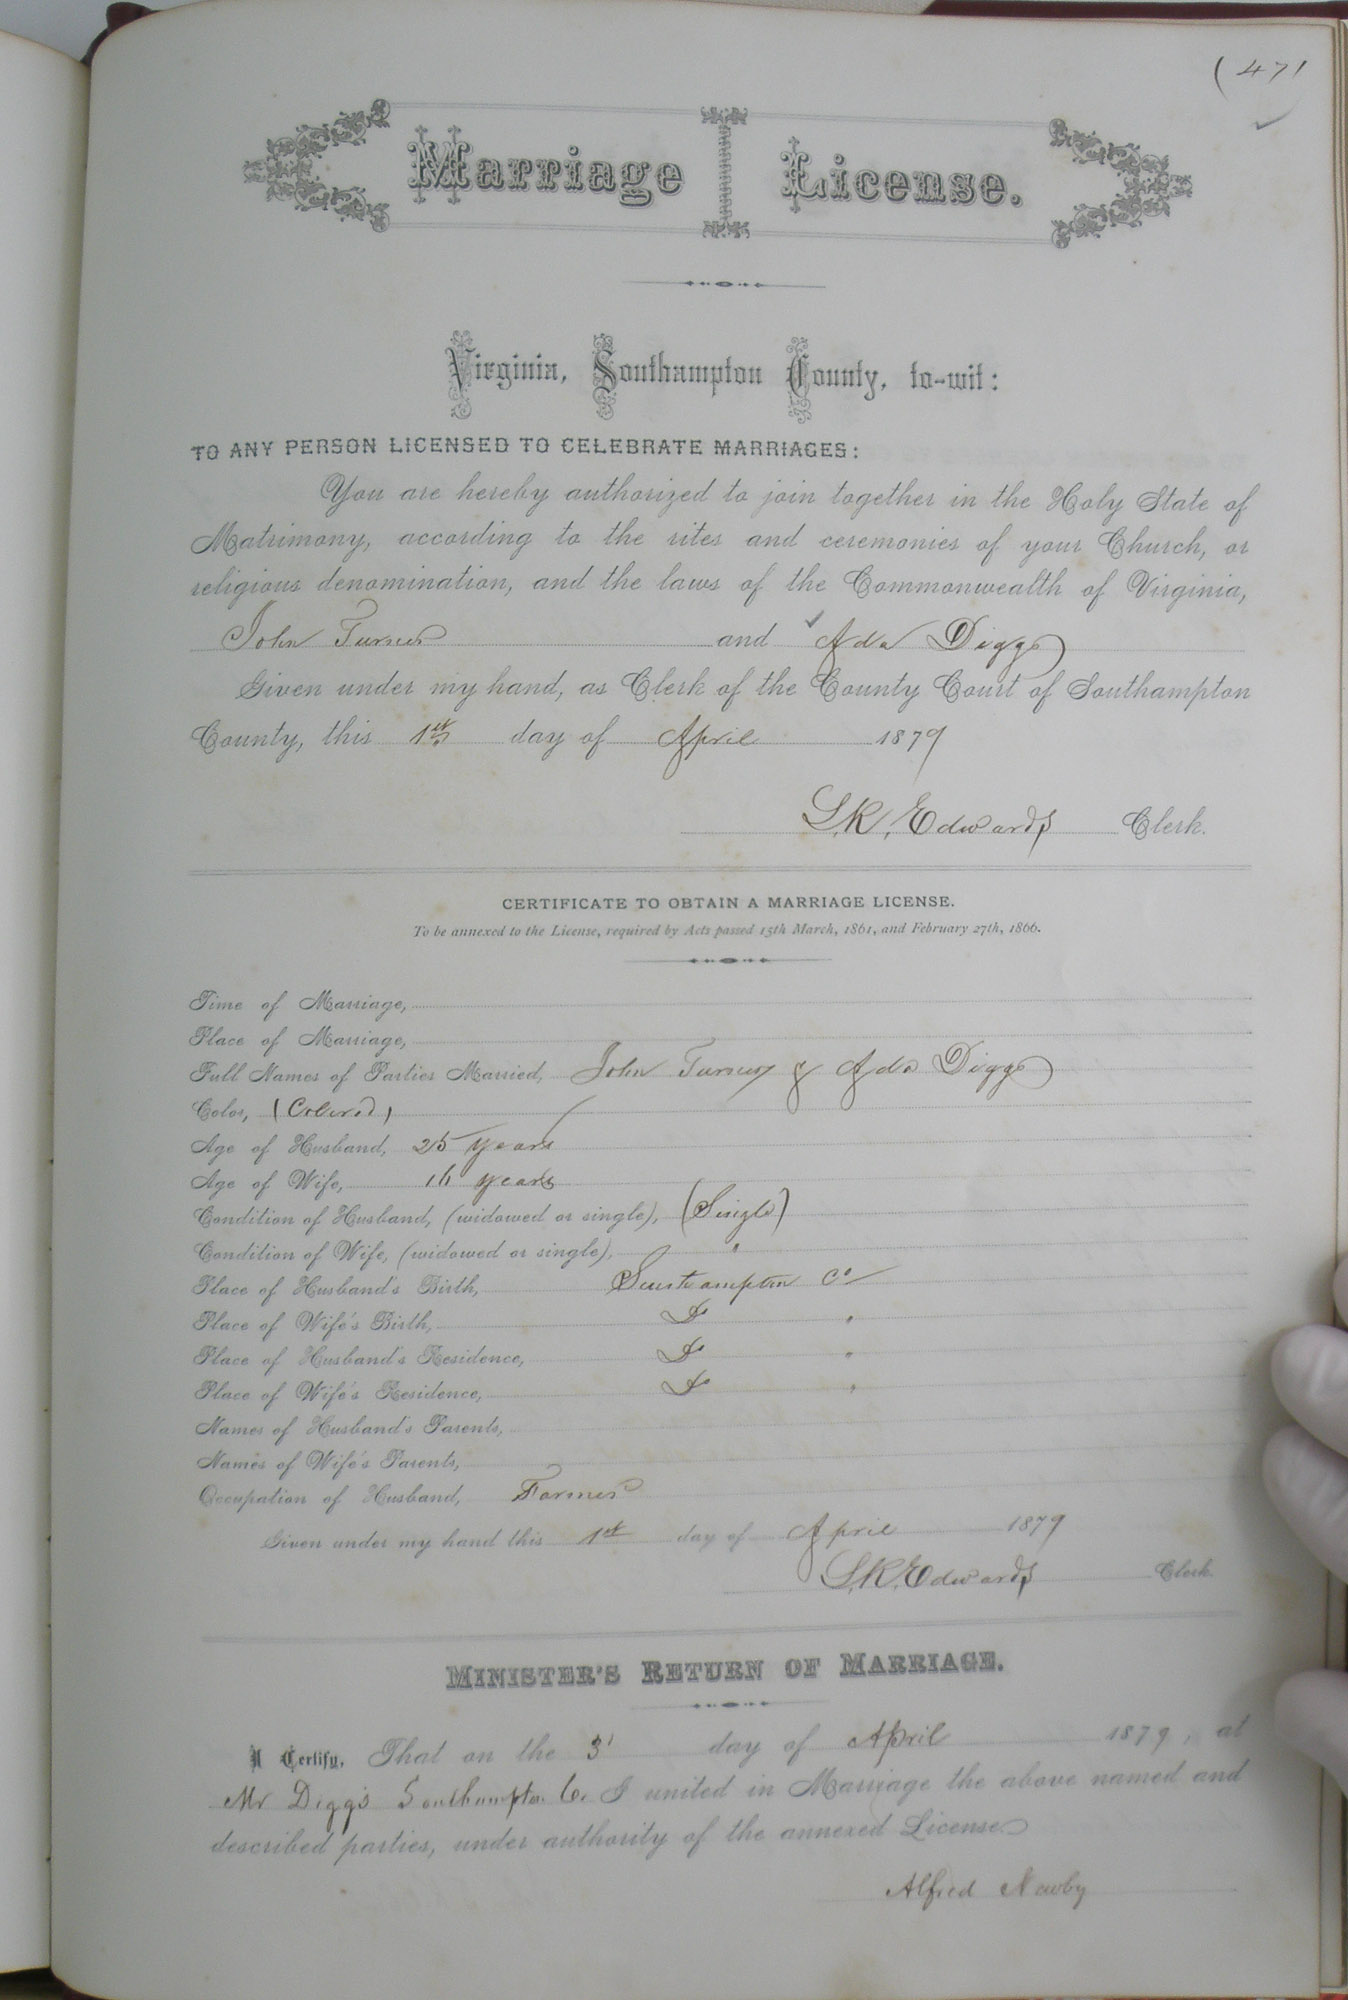 (471
Marriage License.
Virginia, Southampton County, to-wit:
TO ANY PERSON LICENSED TO CELEBRATE MARRIAGES:
You are hereby authorized to join together in the Holy State of
Matrimony, according to the rites and ceremonies of your Church, or
religious denomination, and the laws of the Commonwealth of Virginia,
John Turner and Ada Diggs
Given under my hand, as Clerk of the County Court of Southampton
County, this 1st day of April 1879
L.R. Edwards Clerk.
CERTIFICATE TO OBTAIN A MARRIAGE LICENSE.
To be annexed to the License, required by Acts passed 15th March, 1861, and February 27th, 1866.
Time of Marriage,
Place of Marriage,
Full Names of Parties Married, John Turner & Ada Diggs
Color, (Colored)
Age of Husband, 25 years
Age of Wife, 16 years
Condition of Husband, (widowed or single), (Single)
Condition of Wife, (widowed or single), "
Place of Husband's Birth, Southampton Co
Place of Wife's Birth, Do "
Place of Husband's Residence, Do "
Place of Wife's Residence, Do "
Names of Husband's Parents,
Names of Wife's Parents,
Occupation of Husband, Farmer
Given under my hand this 1st day of April 1879
L.R. Edwards Clerk.
MINISTER'S RETURN OF MARRIAGE.
I Certify, That on the 3 day of April 1879, at
Mr Diggs Southampton Co. I united in Marriage the above named and
described parties, under authority of the annexed License
Alfred Newby